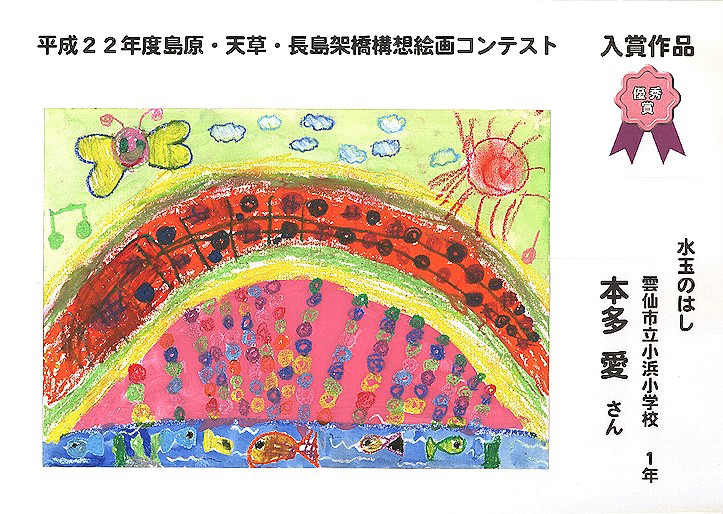 平成２２年度島原・天草・長島架橋構想絵画コンテスト　入賞作品
優秀
賞
水玉のはし
雲仙市立小浜小学校　１年
本多　愛　さん